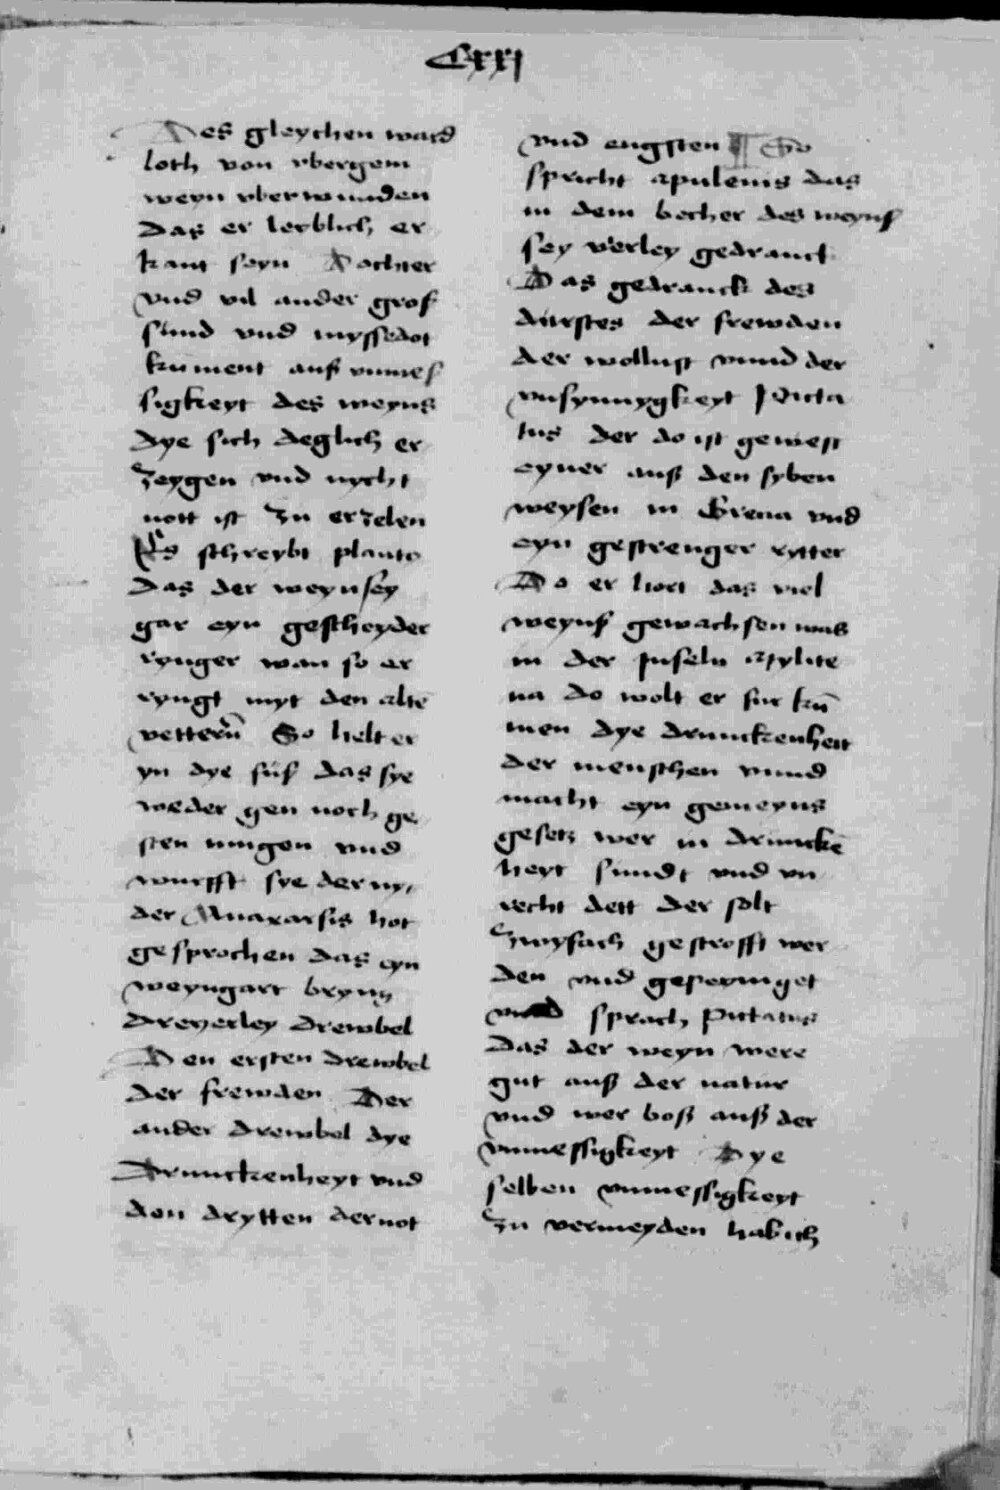 Cxxj
Des gleychen ward
loth von vbergem
weyn vberwunden
Das er leyblich er
kant seyn Dochter
vnd vil ander groß
sünd vnd myssedot
kument auß vnmeß
sigkeyt des weyns
dye sich deglich er
zeygen vnd nycht
nott ist zu erzelen
Es schreybt plauto
das der weyn sey
gar eyn gescheyder
rynger wan so er
ryngt myt den altē
vettern̄ So helt er
yn dye füß das sye
weder gen noch ge
sten mugen vnd
wurfft sye der ny,
der Anaxarsis hot
gesprochen das eyn
weyngart bryng
dreyerley drewbel
Den ersten drewbel
der frewden Der
ander drewbel dye
Drunckenheyt vnd
den drytten der not
vnd engsten ¶ So
spricht apuleuis das
in dem becher des weynß
sey v̈erley gedranck
Das gedranck des
dürstes der frewden
der wollust vnnd der
vnsynnygkeyt Picta
tus der do ist gewest
eyner auß den syben
weysen in Grecia vnd
eyn gestrenger rytter
Do er hort das viel
weynß gewachsen was
in der Inseln apylite
na do wolt er fur kū
men dye drunckenheit
der menschen vnnd
macht eyn gemeyns
gesetz wer in drunckē
heyt sundt vnd vn
recht dett der solt
zwysach gestrofft wer
den vnd gepeynget
vnnd sprach Pictatus
das der weyn were
gut auß der natur
vnd wer boß auß der
vnmessigkeyt Dye
selben vnmessigkeyt
zu vermeyden hab ich